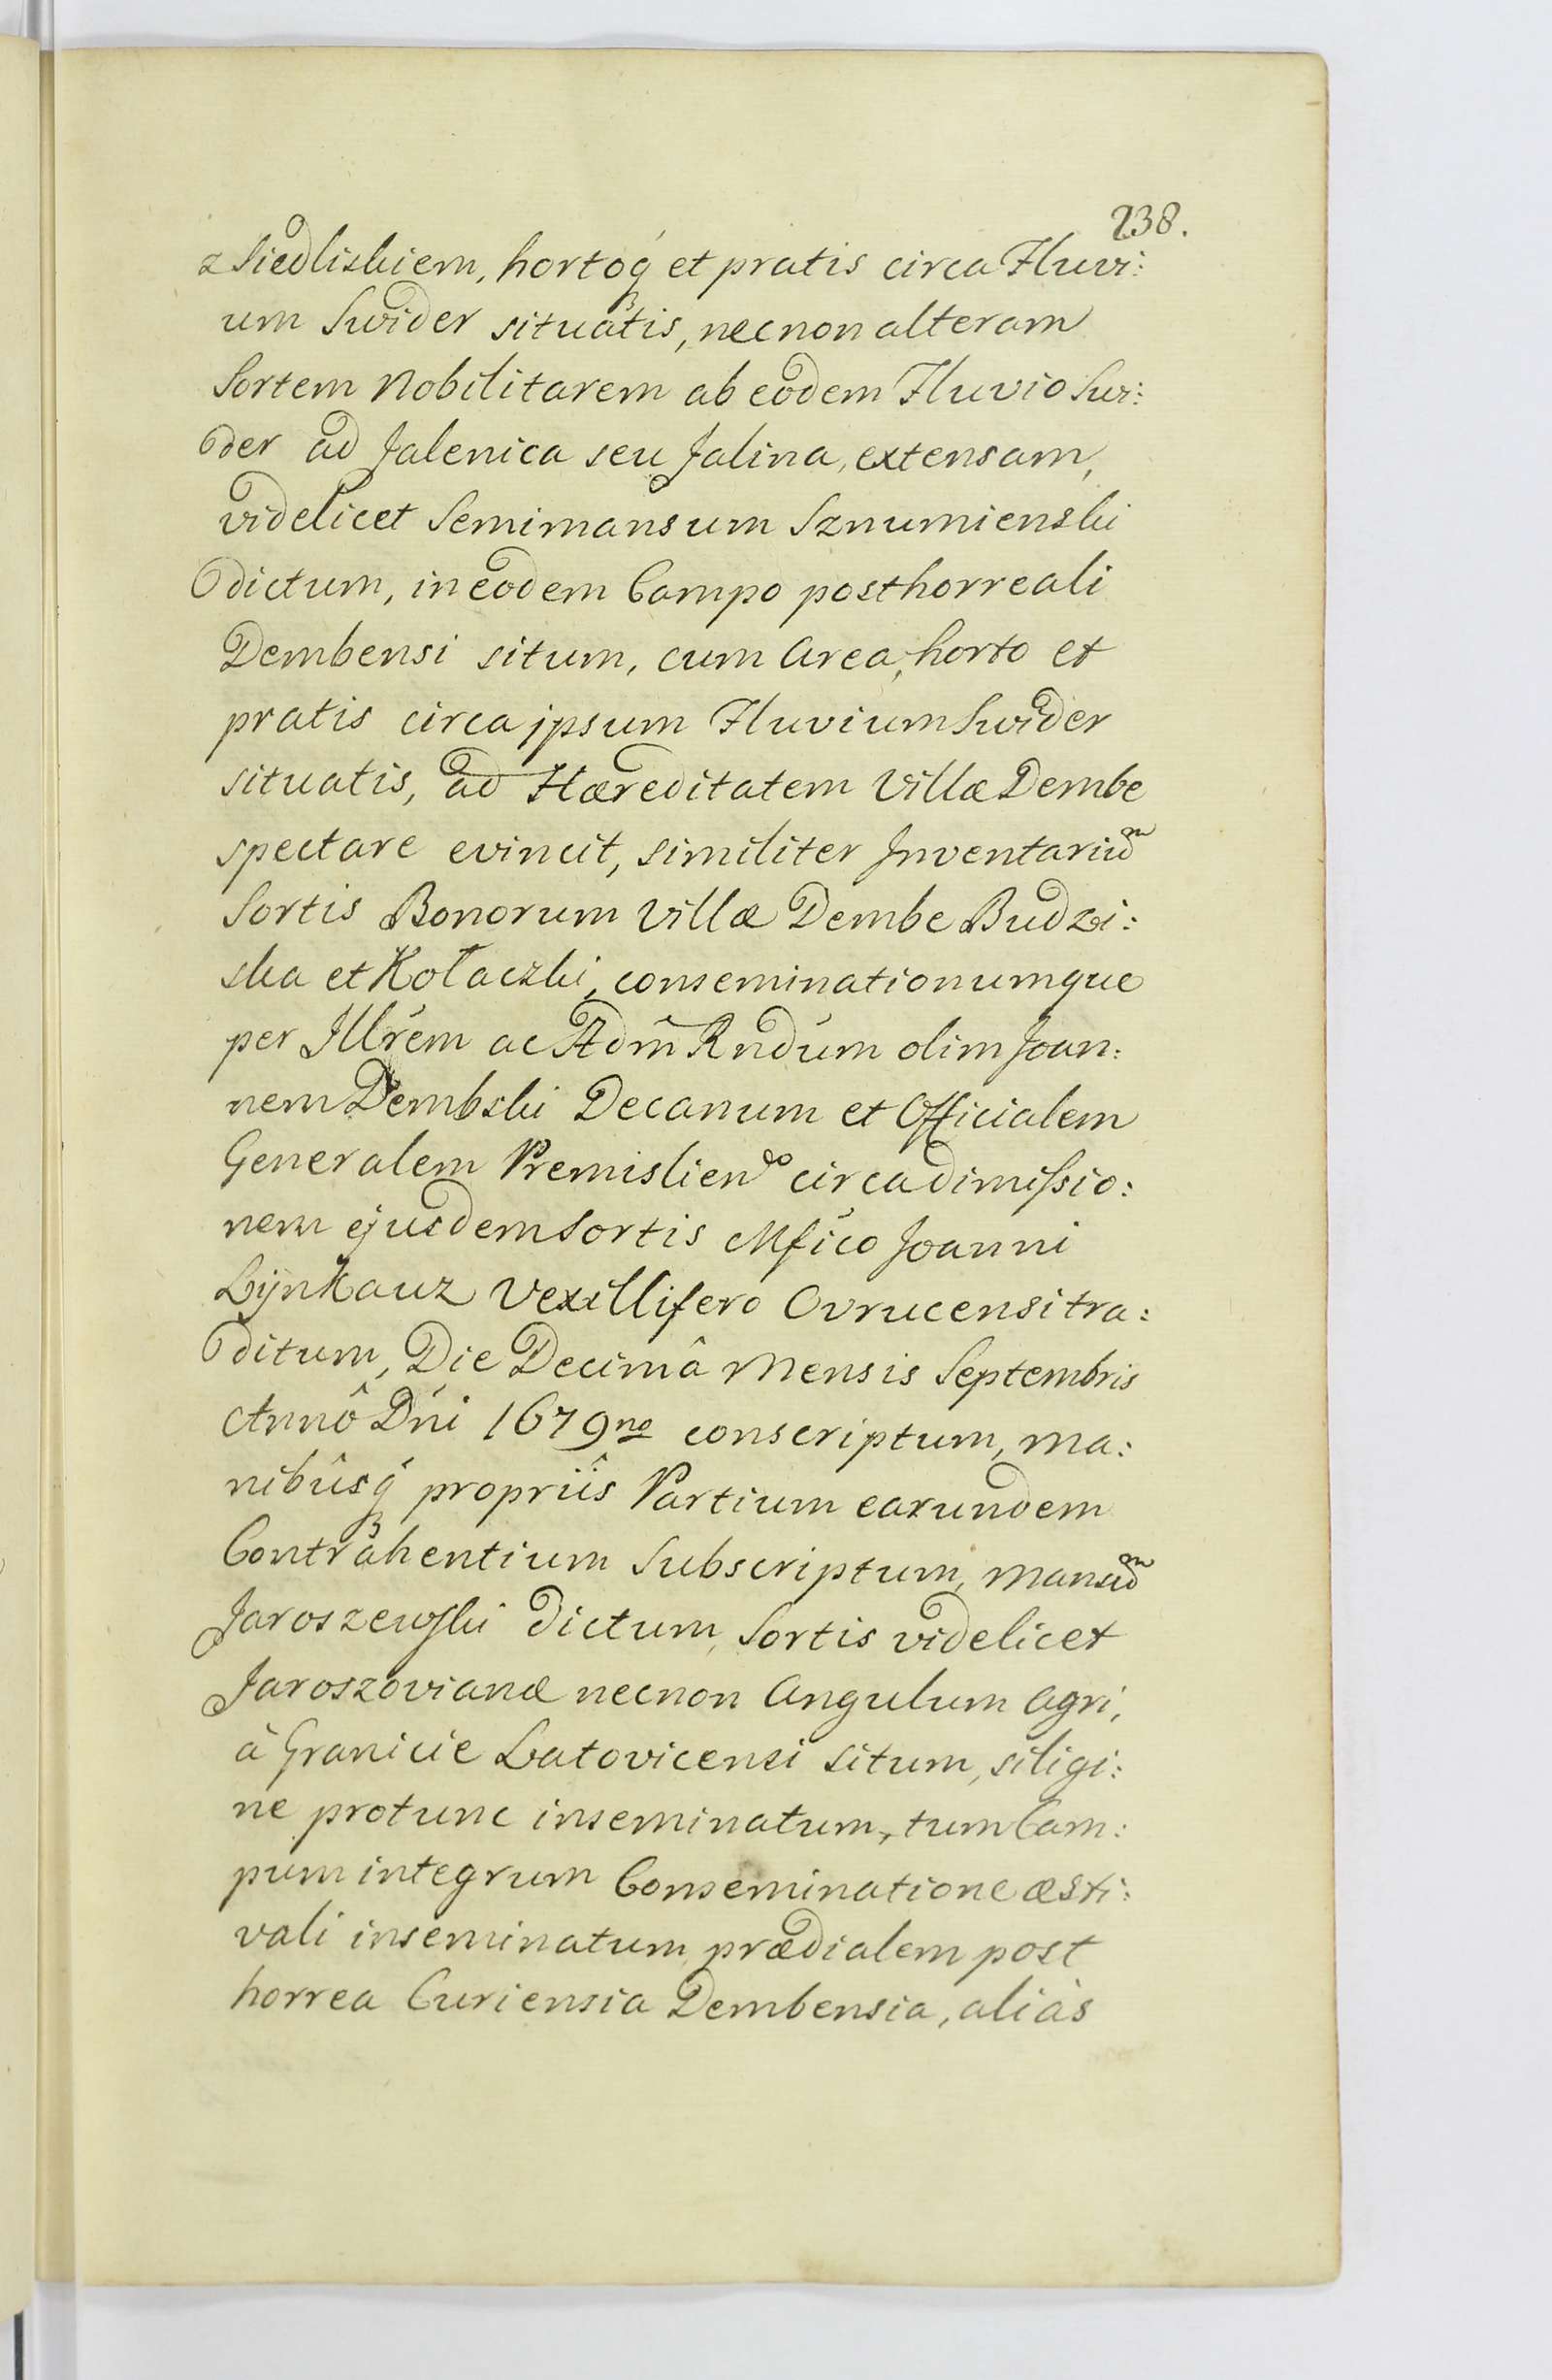 238.
z Siedliskiem, hortoq́ꝫ et pratis circa Fluvi:
um Swider situatis, necnon alteram
Sortem Nobilitarem ab eodem Fluvio Swi:
der ad Jalenica seu Jalina, extensam,
videlicet Semimansum Sznumienski
dictum, in eodem Campo posthorreali
Dembensi situm, cum Area, horto et
pratis circa jpsum Fluvium Swider
situatis, ad Hæreditatem Villæ Dembe
spectare evincit, similiter Jnventariũ
Sortis Bonorum Villæ Dembe Budzi:
ska et Kołaczki, conseminationumque
per Jllrém ac Adm̃ Rndúm olim Joan:
nem Dembski Decanum et Officialem
Generalem Premislien̄ circa dimiſsio:
nem ejusdem Sortis Mfíco Joanni
Lÿnkauz Vexillifero Ovrucensi tra:
ditum, Die Decimâ Mensis Septembris
Annô Dńi 1679no conscriptum, ma:
nibûsq́ꝫ propriîs Partium earundem
Contrahentium Subscriptum, Mansũ
Jaroszewſki dictum, Sortis videlicet
Jaroszovianæ necnon Angulum Agri,
à Granicie Latovicensi situm, siligi:
ne protunc inseminatum, tum Cam:
pum integrum Conseminatione æsti:
vali inseminatum prædialem post
horrea Curiensia Dembensia, aliàs